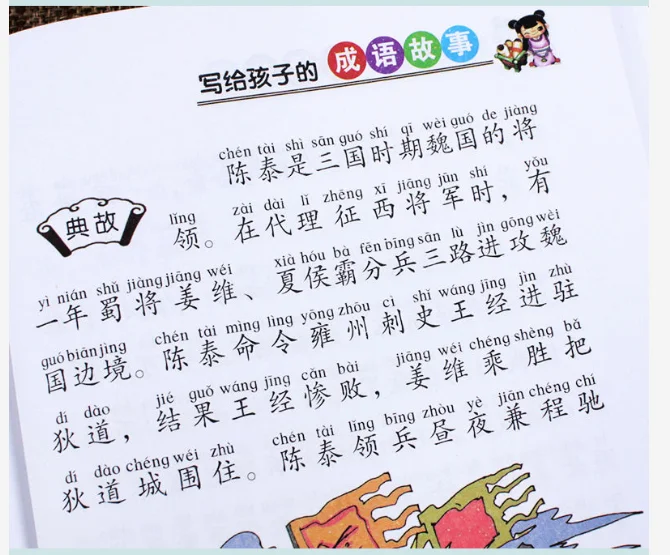 写给孩子的成语故事
chén tài shì sān guó shí qī wèi guó de jiàng
陈泰是三国时期魏国的将
典故
lǐng zài dài lǐ zhēng xī jiāng jūn shí yǒu
领。在代理征西将军时，有
yì nián shǔ jiàng jiāng wéi xià hóu bà fēn bīng sān lù jìn gōng wèi
一年蜀将姜维、夏侯霸分兵三路进攻魏
guó biān jìng chén tài mìng lìng yōng zhōu cì shǐ wáng jīng jìn zhù
国边境。陈泰命令雍州刺史王经进驻
dí dào jié guǒ wáng jīng cǎn bài jiāng wéi chéng shèng bǎ
狄道，结果王经惨败，姜维乘胜把
dí dào chéng wéi zhù chén tài lǐng bīng zhòu yè jiān chéng chí
狄道城围住。陈泰领兵昼夜兼程驰